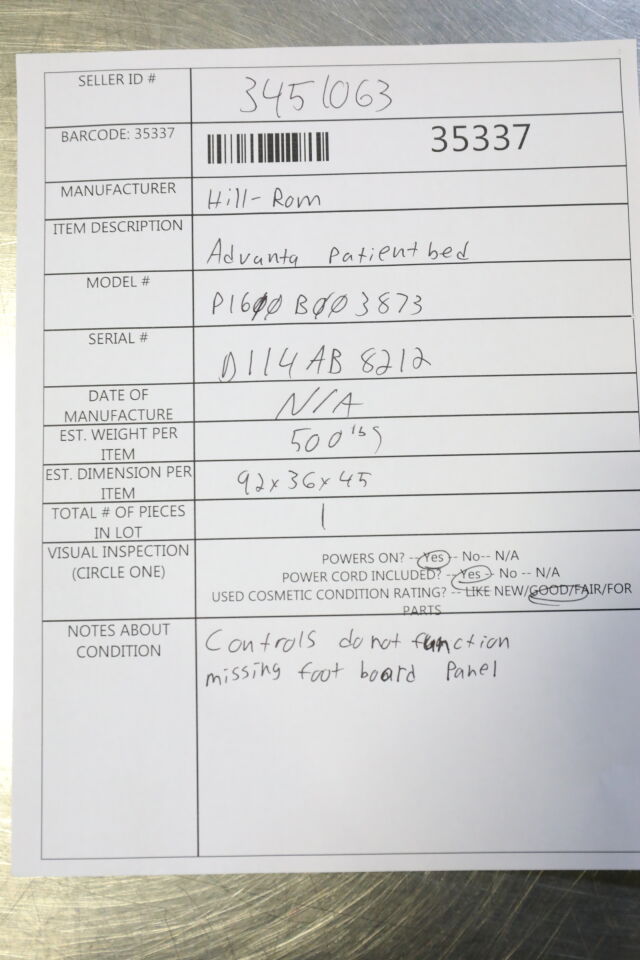 SELLER ID # 3451063
BARCODE: 35337 35337
MANUFACTURER Hill-Rom
ITEM DESCRIPTION Advanta Patient bed
MODEL # P1600B003873
SERIAL # D114AB8212
DATE OF
MANUFACTURE N/A
EST. WEIGHT PER
ITEM 500 lbs
EST. DIMENSION PER
ITEM 92x36x45
TOTAL # OF PIECES
IN LOT 1
VISUAL INSPECTION
(CIRCLE ONE)
POWERS ON? -- Yes -- No-- N/A
POWER CORD INCLUDED? -- Yes -- No -- N/A
USED COSMETIC CONDITION RATING? -- LIKE NEW/GOOD/FAIR/FOR
PARTS
NOTES ABOUT
CONDITION
Controls do not function
missing foot board Panel